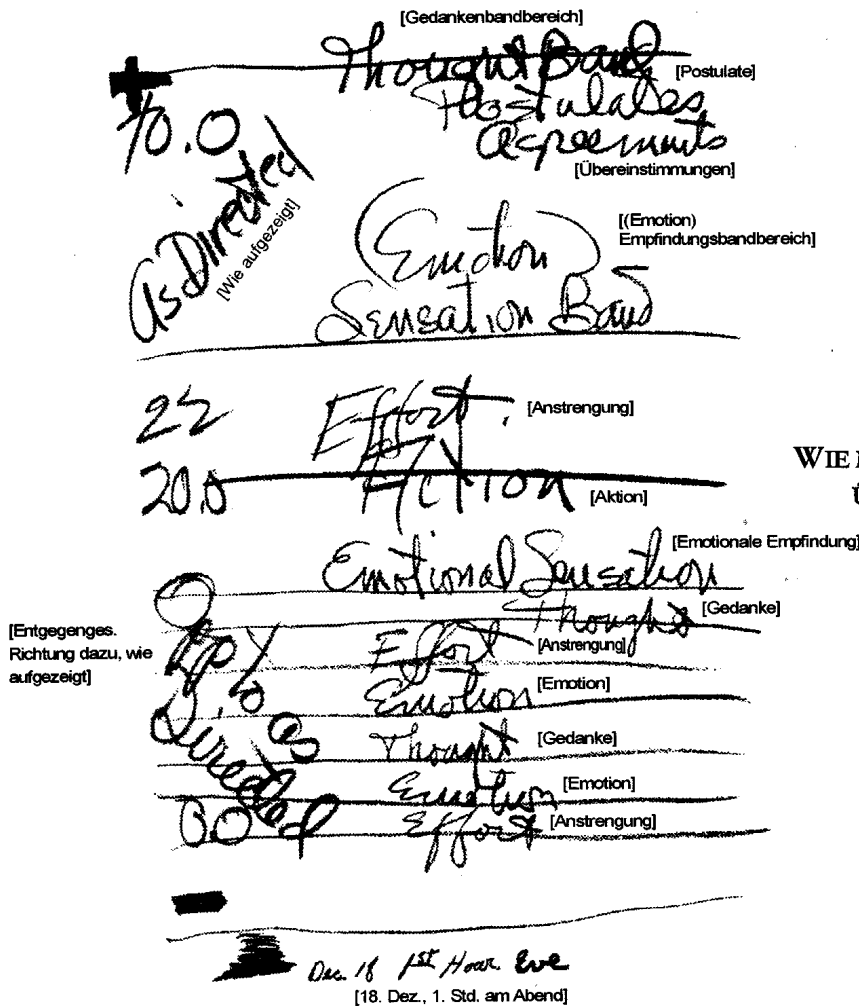 [Gedankenbandbereich]
Thought Band
[Postulate]
+
40.0
Postulates
Agreements
[Übereinstimmungen]
As Directed
[Wie aufgezeigt]
(Emotion)
[(Emotion)
Empfindungsbandbereich]
Sensation Band
22 Effort. [Anstrengung]
WIE
20.0 Action [Aktion]
[Emotionale Empfindung]
Emotional Sensation
Thought [Gedanke]
[Entgegenges.
Richtung dazu, wie
aufgezeigt]
Opp. to as
Directed
Effort [Anstrengung]
Emotion [Emotion]
Thought [Gedanke]
Emotion [Emotion]
0.0 Effort [Anstrengung]
Dec. 18 1st Hour. Eve
[18. Dez., 1. Std. am Abend]